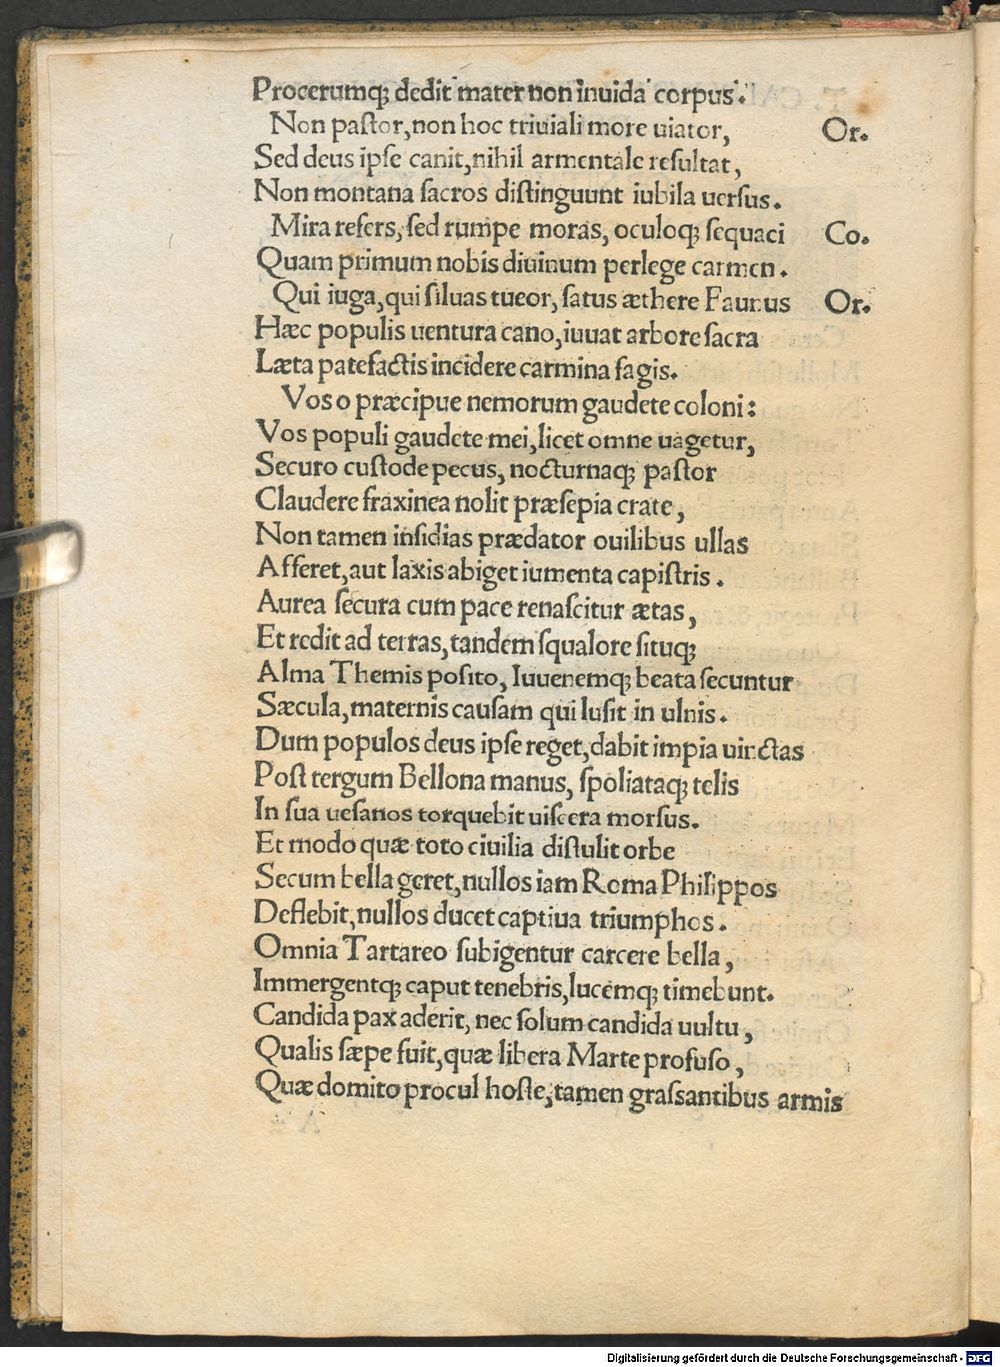 Procerumq; dedit mater non inuida corpus.
Non pastor, non hoc triuiali more uiator, Or.
Sed deus ipse canit, nihil armentale resultat,
Non montana sacros distinguunt iubila uersus.
Mira refers, sed rumpe moras, oculoq; sequaci Co.
Quam primum nobis diuinum perlege carmen.
Qui iuga, qui siluas tueor, satus æthere Faunus Or.
Hæc populis uentura cano, iuuat arbore sacra
Læta patefactis incidere carmina fagis.
Vos o præcipue nemorum gaudete coloni:
Vos populi gaudete mei, licet omne uagetur,
Securo custode pecus, nocturnaq; pastor
Claudere fraxinea nolit præsepia crate,
Non tamen insidias prædator ouilibus ullas
Afferet, aut laxis abiget iumenta capistris.
Aurea secura cum pace renascitur ætas,
Et redit ad terras, tandem squalore situq;
Alma Themis posito, Iuuenemq; beata secuntur
Sæcula, maternis causam qui lusit in ulnis.
Dum populos deus ipse reget, dabit impia uinctas
Post tergum Bellona manus, spoliataq; telis
In sua uesanos torquebit uiscera morsus.
Et modo quæ toto ciuilia distulit orbe
Secum bella geret, nullos iam Roma Philippos
Deflebit, nullos ducet captiua triumphos.
Omnia Tartareo subigentur carcere bella,
Immergentq; caput tenebris, lucemq; timebunt.
Candida pax aderit, nec solum candida uultu,
Qualis sæpe fuit, quæ libera Marte profuso,
Quæ domito procul hoste, tamen grassantibus armis
Digitalisierung gefördert durch die Deutsche Forschungsgemeinschaft - DFG